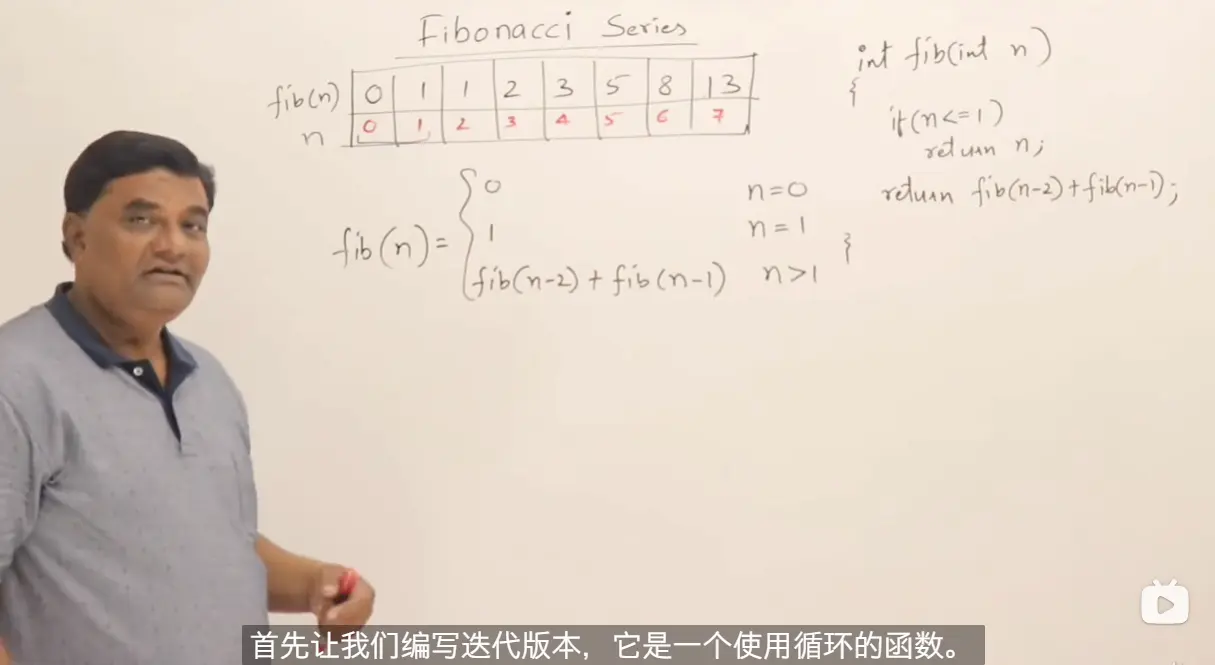 Fibonacci Series
fib(n) 0 1 1 2 3 5 8 13
n 0 1 2 3 4 5 6 7
fib(n) = { 0 n=0
1 n=1
fib(n-2) + fib(n-1) n>1
int fib(int n)
{
if(n<=1)
return n;
return fib(n-2)+fib(n-1);
}
首先让我们编写迭代版本，它是一个使用循环的函数。